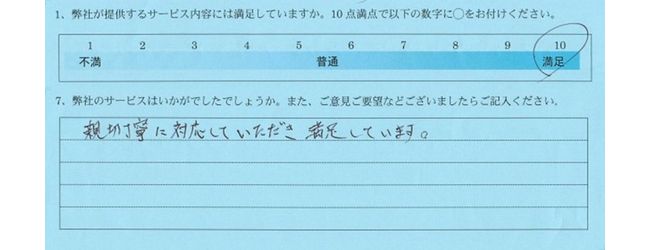 1、弊社が提供するサービス内容には満足していますか。10点満点で以下の数字に○をお付けください。
1 2 3 4 5 6 7 8 9 10
不満 普通 満足
7、弊社のサービスはいかがでしたでしょうか。また、ご意見ご要望などございましたらご記入ください。
親切丁寧に対応していただき満足しています。